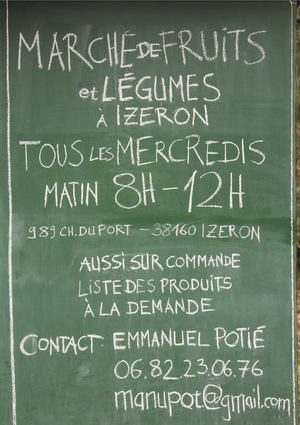 MARCHÉ DE FRUITS
et LÉGUMES
À IZERON
TOUS LES MERCREDIS
MATIN 8H-12H
989 CH. DU PORT - 38160 IZERON
AUSSI SUR COMMANDE
LISTE DES PRODUITS
À LA DEMANDE
CONTACT: EMMANUEL POTIÉ
06.82.23.06.76
manupot@gmail.com